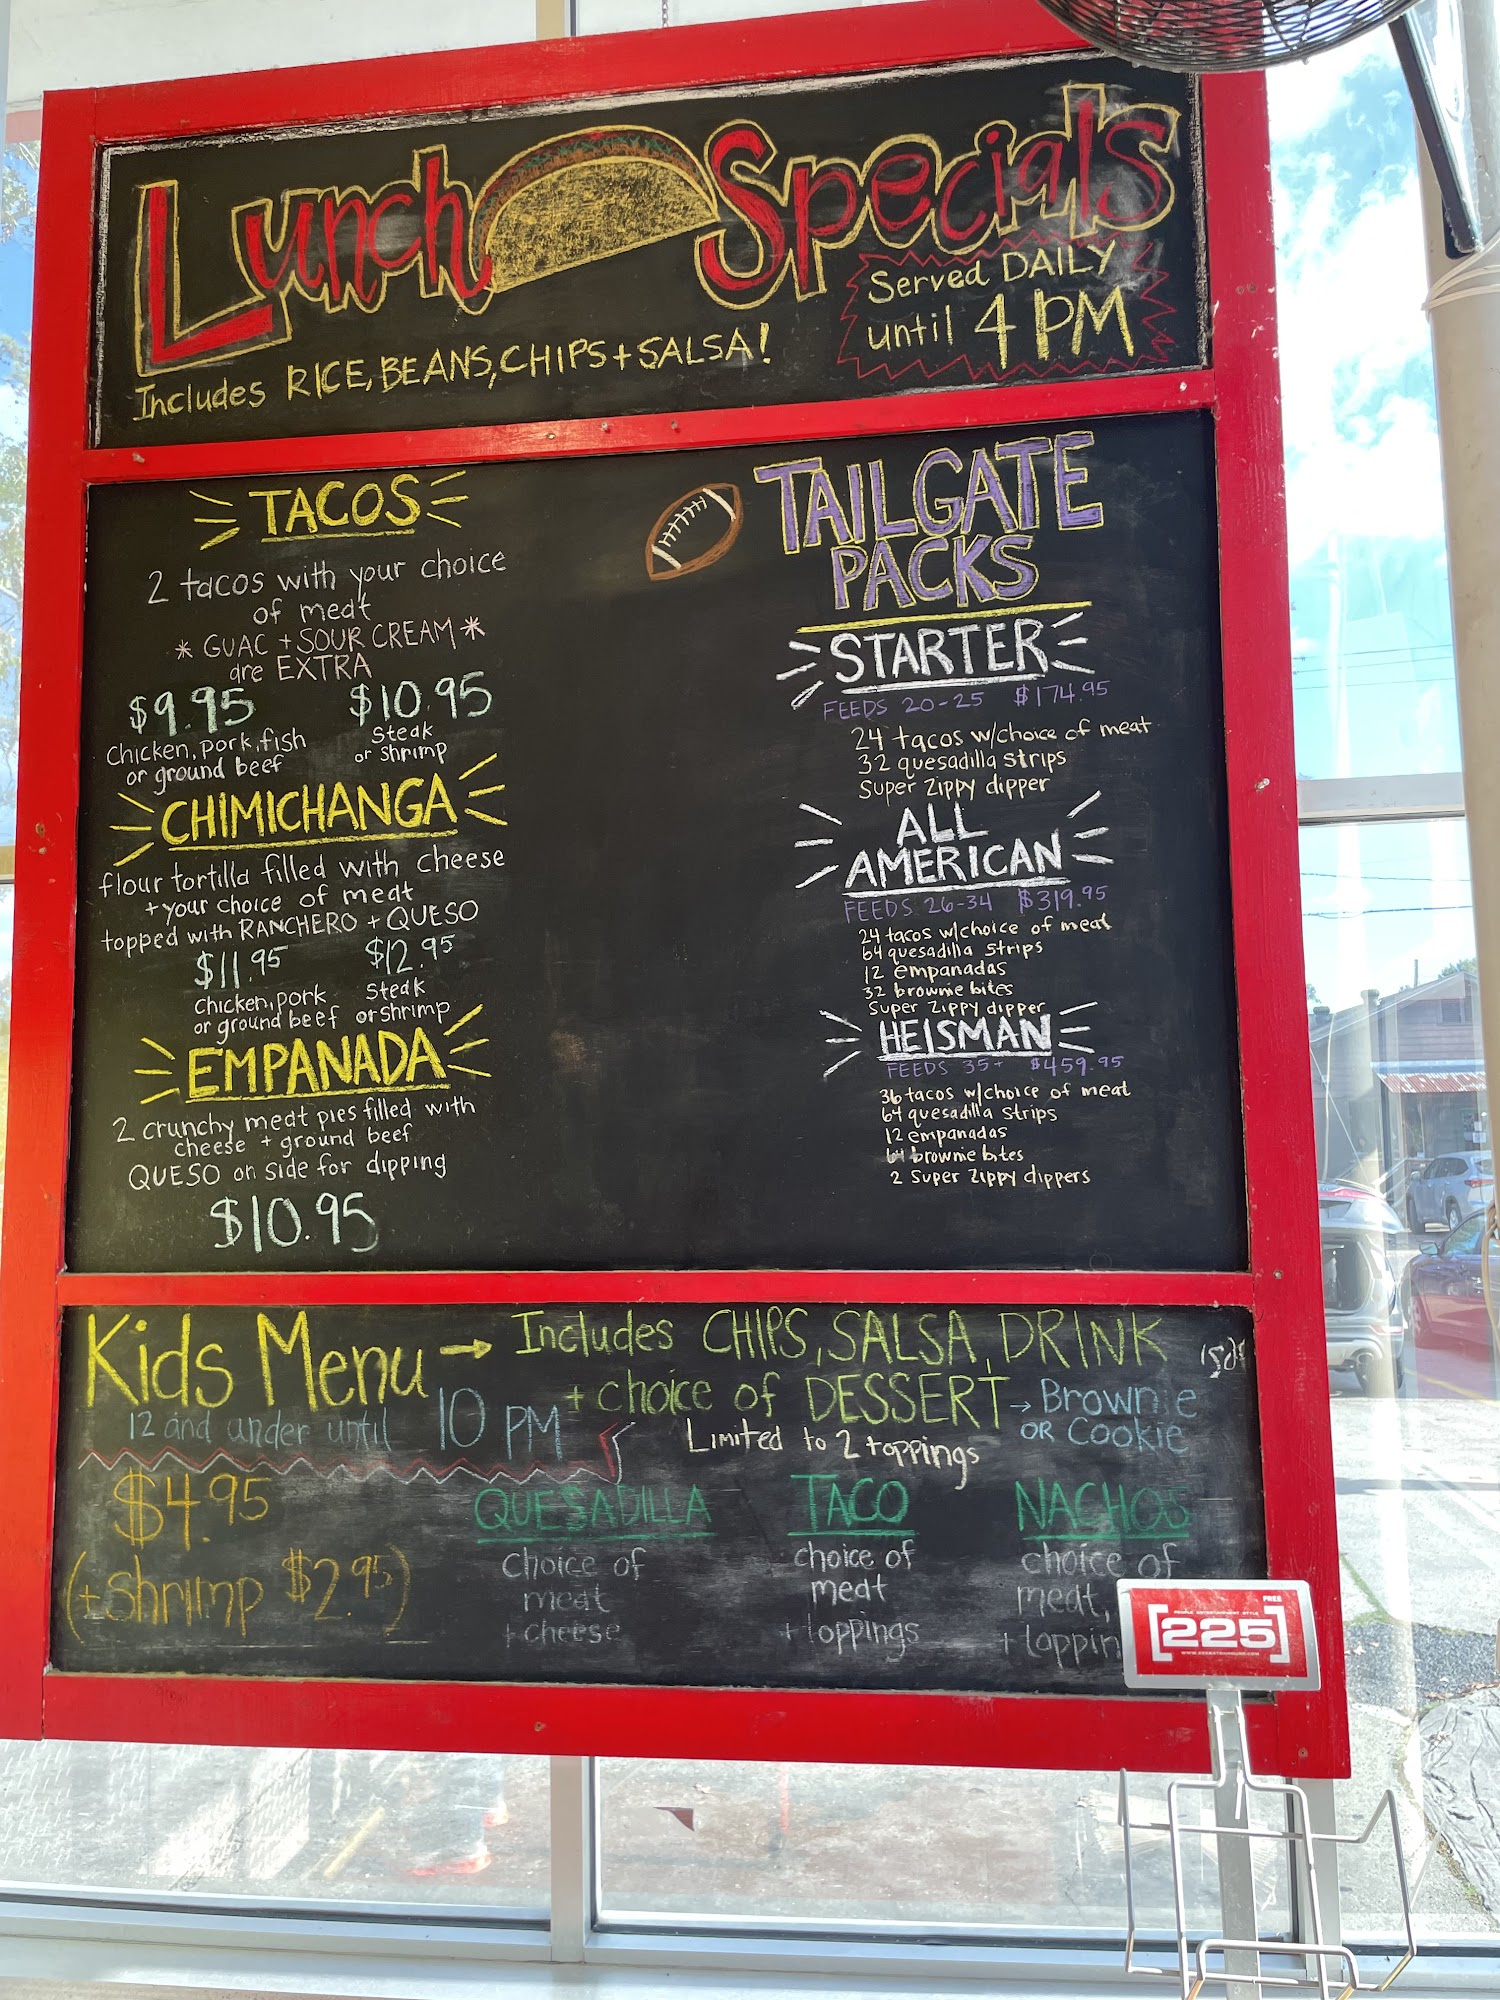 Lunch Specials
Served DAILY
until 4 PM
Includes RICE, BEANS, CHIPS + SALSA!
TACOS
2 tacos with your choice
of meat
* GUAC + SOUR CREAM *
are EXTRA
$9.95 $10.95
Chicken, pork, fish
or ground beef
Steak
or shrimp
CHIMICHANGA
flour tortilla filled with cheese
+ your choice of meat
topped with RANCHERO + QUESO
$11.95 $12.95
Chicken, pork
or ground beef
Steak
or shrimp
EMPANADA
2 crunchy meat pies filled with
cheese + ground beef
QUESO on side for dipping
$10.95
TAILGATE
PACKS
STARTER
FEEDS 20-25 $174.95
24 tacos w/choice of meat
32 quesadilla strips
Super Zippy dipper
ALL
AMERICAN
FEEDS 26-34 $319.95
24 tacos w/choice of meat
64 quesadilla strips
12 empanadas
32 brownie bites
Super Zippy dipper
HEISMAN
FEEDS 35+ $459.95
36 tacos w/choice of meat
64 quesadilla strips
12 empanadas
64 brownie bites
2 Super Zippy dippers
Kids Menu → Includes CHIPS, SALSA, DRINK
+ choice of DESSERT → Brownie
OR Cookie
12 and under until 10 PM
Limited to 2 toppings
$4.95
(+ shrimp $2.95)
QUESADILLA
choice of
meat
+ cheese
TACO
choice of
meat
+ toppings
NACHOS
choice of
meat,
+ toppin
FREE
[225]